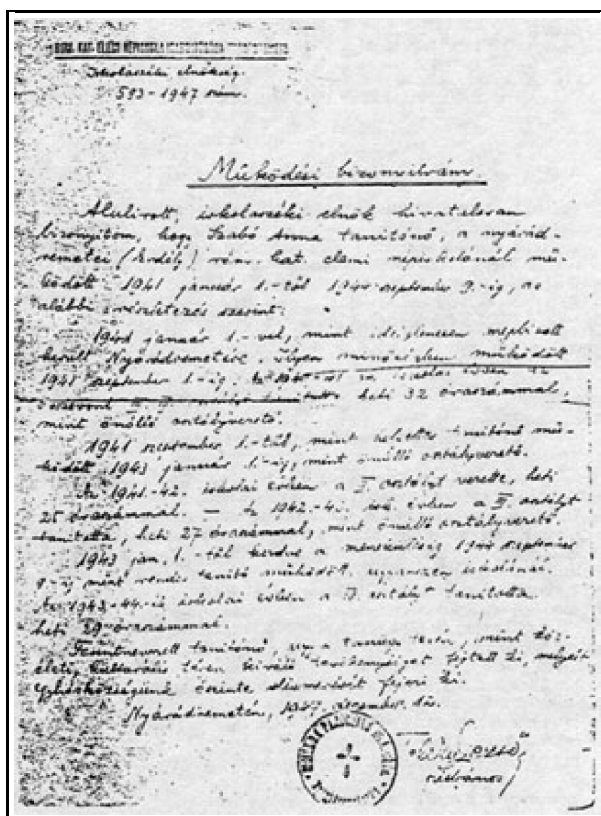 RÓM. KAT. ELEMI NÉPISKOLA
Iskolaszéki elnökség.
593-1947 szám.
Működési bizonyítvány.
Alulírott, iskolaszéki elnök hivatalosan
bizonyítom, hogy Szabó Anna tanítónő, a nyárád-
remetei (Erdély) róm. kat. elemi népiskolánál mű-
ködött 1941 január 1.-től 1944 szeptember 9.-ig, az
alábbi részletezés szerint:
1941 január 1.-vel, mint ideiglenesen megbízott
került Nyárádremetére. Ilyen minőségben működött
1941 szeptember 1.-ig. Az
heti 32 óraszámmal,
mint önálló osztályvezető.
1941 szeptember 1.-től, mint helyettes tanítónő mű-
ködött 1943 január 1.-ig, mint önálló osztályvezető.
Az 1941-42. iskolai évben a I. osztályt vezette, heti
25 óraszámmal. — Az 1942-43. isk. évben a II. osztályt
tanította, heti 27 óraszámmal, mint önálló osztályvezető.
1943 jan. 1.-től kezdve a 1944 szeptember
9.-ig mint rendes tanító működött ugyanezen iskolánál.
Az 1943-44-ik iskolai évben a osztályt tanította
heti 29 óraszámmal.
Fentnevezett tanítónő, úgy a tanügy terén, mint köz-
életi, kulturális téren kiváló tevékenységet fejtett ki, melyért
Egyházközségünk őszinte elismerését fejezi ki.
Nyárádremetén, 1947.
plébános